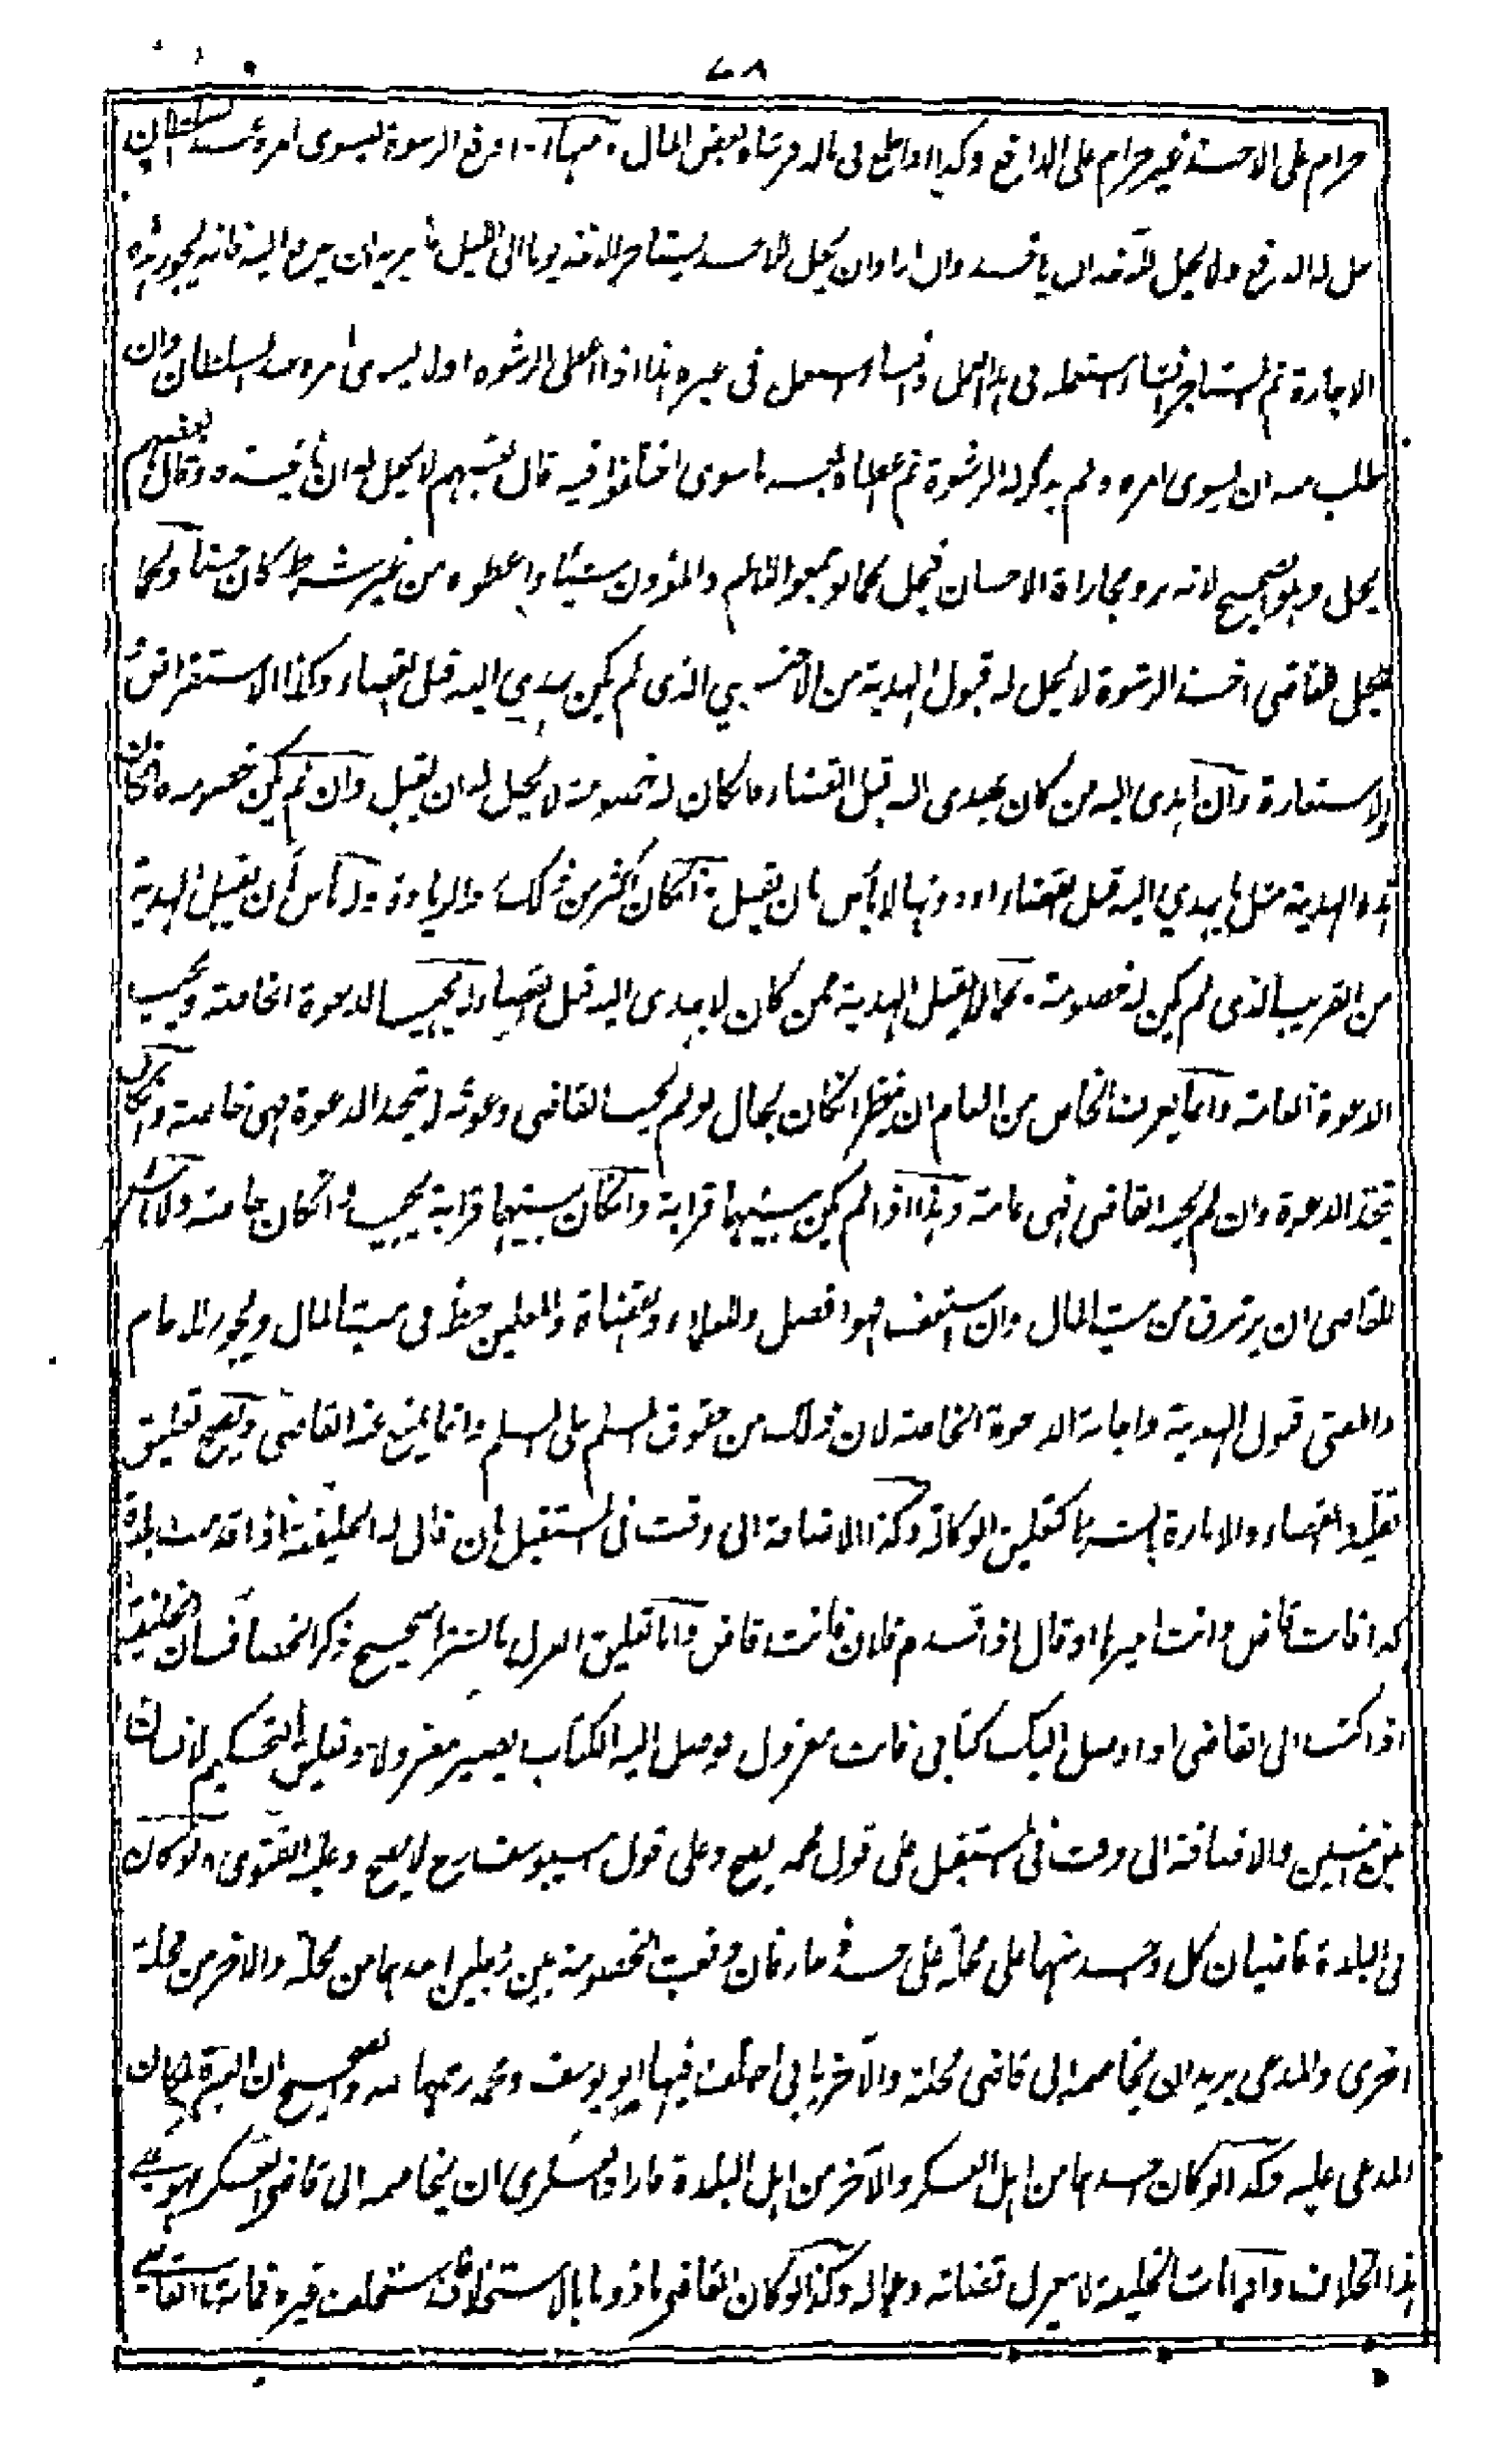 ٧٨
حرام على الاخذ غير حرام على الدافع وكذا اذا طمع فى ماله فرشاه ببعض المال ومنها اذا دفع الرشوة ليسوى امره عند السلطان
حل له الدفع ولا يحل للآخذ ان ياخذ وان اراد ان يحل للاخذ يستاجر الاخذ يوما الى الليل بما يريد ان يدفع اليه فانه يجوز هذه
الاجارة ثم المستاجر ان شاء استعمله فى هذا العمل وان شاء استعمل فى غيره هذا اذا اعطى الرشوة اولا ليسوى امره عند السلطان وان
طلب منه ان يسوى امره ولم يذكر له الرشوة ثم اعطاه بعد ما سوى اختلفوا فيه قال بعضهم لا يحل له ان ياخذه وقال بعضهم
يحل وهو الصحيح لانه بر ومجازاة الاحسان فيحل كما لو جمعوا للامام والمؤذن شيئا واعطوه من غير شرط كان حسنا وكما
لا يحل للقاضى اخذ الرشوة لا يحل له قبول الهدية من الاجنبي الذى لم يكن يهدي اليه قبل القضاء وكذا الاستقراض
والاستعارة وان اهدى اليه من كان يهدى اليه قبل القضاء فان كان له خصومة لا يحل له ان يقبل وان لم يكن خصومة فان كان
هذه الهدية مثل ما يهدي اليه قبل القضاء او دونها لا بأس بان يقبل وان كان اكثر من ذلك رد الزيادة ولا بأس بأن يقبل الهدية
من القريب الذى لم يكن له خصومة وكما لا يقبل الهدية ممن كان لا يهدى اليه قبل القضاء لا يجيب الدعوة الخاصة ويجيب
الدعوة العامة وانما يعرف الخاص من العام ان ينظر ان كان بحال لو لم يجب القاضى دعوته لا يتخذ الدعوة فهى خاصة وان كان
يتخذ الدعوة وان لم يجب القاضى فهى عامة وهذا اذا لم يكن بينهما قرابة وان كان بينهما قرابة يجيبه وان كان خاصة ولا بأس
للقاضى ان يرتزق من بيت المال وان استعف فهو افضل وللعلماء والقضاة والمعلمين حظ فى بيت المال ويجوز للامام
والمفتى قبول الهدية واجابة الدعوة الخاصة لان ذلك من حقوق المسلم على المسلم وانما يمنع عنه القاضى ويصح تعليق
تقليد القضاء والامارة بالشرط كتعليق الوكالة وكذا الاضافة الى وقت فى المستقبل بان قال له الخليفة اذا قدمت بلدة
كذا فانت قاض وانت اميرها او قال اذا قدم فلان فانت قاض واما تعليق العزل بالشرط صحيح ذكر الخصاف ان الخليفة
اذا كتب الى القاضى اذا وصل اليك كتابى فانت معزول فوصل اليه الكتاب يصير معزولا وتعليق التحكيم لانسان
بين اثنين والاضافة الى وقت فى المستقبل على قول محمد يصح وعلى قول ابى يوسف رح لا يصح وعليه الفتوى ولو كان
فى البلدة قاضيان كل واحد منهما على محلة على حدة فارادا فان وقعت الخصومة بين رجلين احدهما من محلة والاخر من محلة
اخرى والمدعى يريد ان يخاصمه الى قاضى محلته والآخر يابى اختلف فيها ابو يوسف ومحمد رحمهما الله والصحيح ان العبرة لمكان
المدعى عليه وكذا لو كان احدهما من اهل العسكر والآخر من اهل البلدة فاراد العسكرى ان يخاصمه الى قاضى العسكر فهو على
هذا الخلاف واذا مات الخليفة لا يعزل قضاته وعماله وكذا لو كان القاضى ماذونا بالاستخلاف فاستخلف غيره فمات القاضى